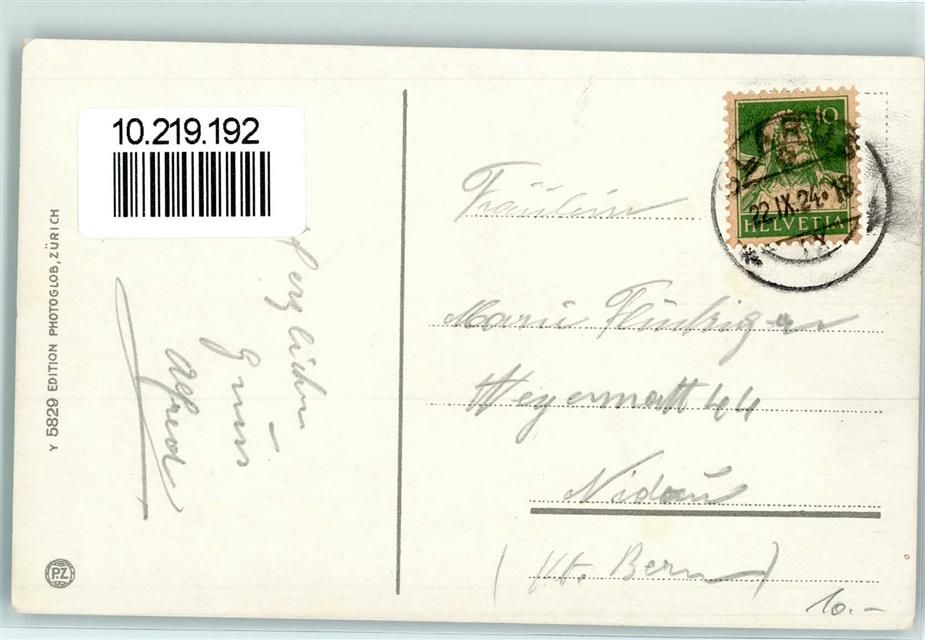 10.219.192
Y 5829 EDITION PHOTOGLOB, ZÜRICH
PZ
Herzlichen
Gruss
Alfred
10
22.IX.24.18
HELVETIA
Fräulein
Marie Flückiger
Weyermatt 44
Nidau
(Kt. Bern)
10.-